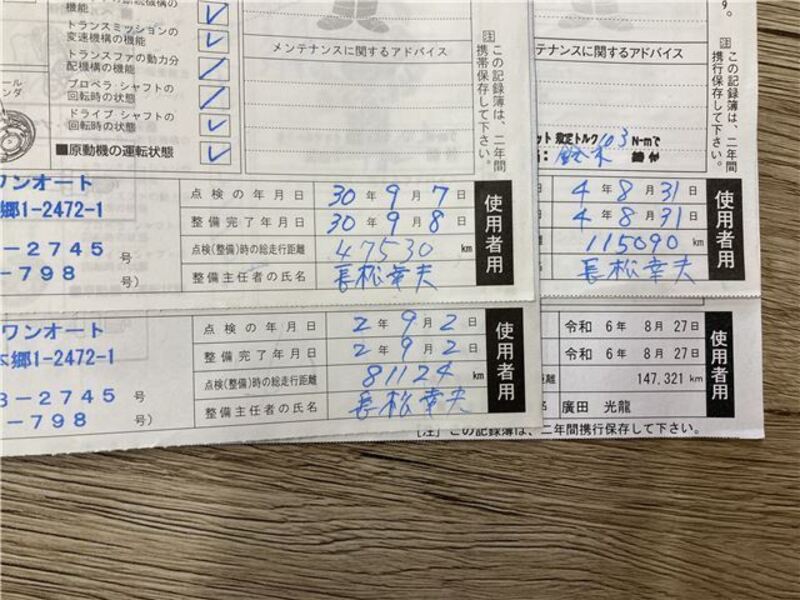 機能
トランスミッションの
変速機構の機能
トランスファの動力分
配機構の機能
プロペラ・シャフトの
回転時の状態
ドライブ・シャフトの
回転時の状態
■原動機の運転状態
メンテナンスに関するアドバイス
[注]この記録簿は、二年間
携帯保存して下さい。
テナンスに関するアドバイス
[注]この記録簿は、二年間
携行保存して下さい。
103 N-mで
ワンオート
郷1-2472-1
-2745 号
-798 号)
点検の年月日 30年9月7日
整備完了年月日 30年9月8日
点検(整備)時の総走行距離 47530 km
整備主任者の氏名 長松幸夫
使用者用
4年8月31日
4年8月31日
115090 km
長松幸夫
使用者用
ワンオート
郷1-2472-1
3-2745 号
-798 号)
点検の年月日 2年9月2日
整備完了年月日 2年9月2日
点検(整備)時の総走行距離 81124 km
整備主任者の氏名 長松幸夫
使用者用
令和 6年 8月27日
令和 6年 8月27日
距離 147,321 km
名 廣田 光龍
使用者用
[注]この記録簿は、二年間携行保存して下さい。